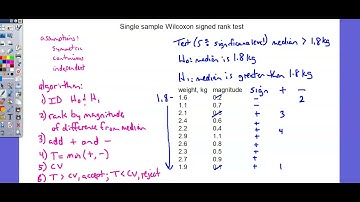 Single sample Wilcoxon signed rank test
assumptions:
symmetric
continuous
independent
algorithm:
1) ID H0 & H1
2) rank by magnitude
of difference from median
3) add + and -
4) T = min(+, -)
5) CV
6) T > CV, accept; T < CV, reject
Test (5% significance level) median > 1.8 kg
H0: median is 1.8kg
H1: median is greater than 1.8 kg
weight, kg magnitude sign + -
1.8-
1.6 0.2 - 2
1.1 0.7 -
2.1 0.3 + 3
2.4 0.6 +
2.2 0.4 + 4
2.6 0.8 +
2.3 0.5 +
2.7 0.9 +
1.9 0.1 + 1